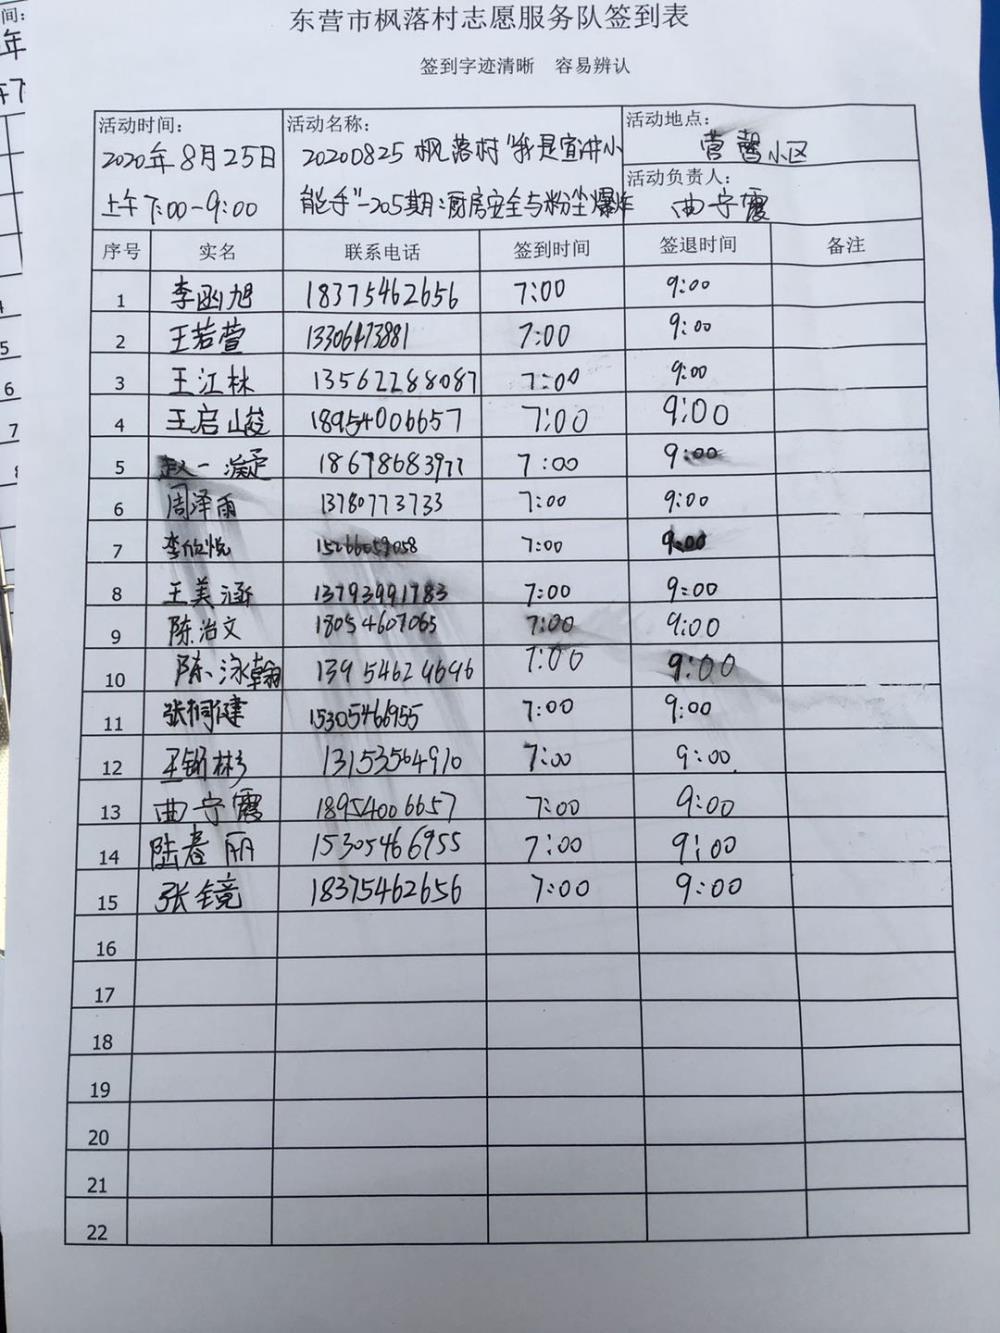 东营市枫落村志愿服务队签到表
签到字迹清晰 容易辨认
活动时间: 活动名称: 活动地点:
2020年8月25日 20200825 枫落村"我是宣讲小 营馨小区
上午7:00-9:00 能手"-205期:厨房安全与粉尘爆炸 活动负责人: 曲宁霞
序号 实名 联系电话 签到时间 签退时间 备注
1 李函旭 18375462656 7:00 9:00
2 王若萱 13306473881 7:00 9:00
3 王江林 13562288087 7:00 9:00
4 王启峻 18954006657 7:00 9:00
5 赵一凝 18678683977 7:00 9:00
6 周泽雨 13780773733 7:00 9:00
7 李欣悦 7:00 9:00
8 王美涵 13793991783 7:00 9:00
9 陈治文 18054607065 7:00 9:00
10 陈泳翰 13954629696 7:00 9:00
11 15305466955 7:00 9:00
12 13153564910 7:00 9:00
13 曲宁霞 18954006657 7:00 9:00
14 陆春丽 15305466955 7:00 9:00
15 张镜 18375462656 7:00 9:00
16
17
18
19
20
21
22